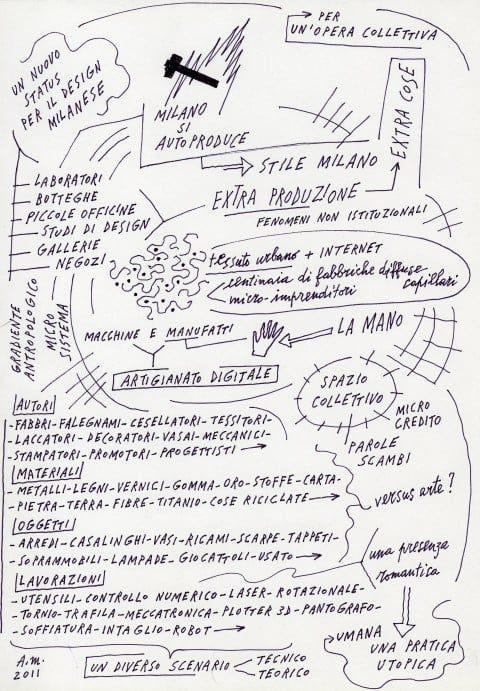 → PER
UN'OPERA COLLETTIVA
UN NUOVO
STATUS
PER IL DESIGN
MILANESE
MILANO
SI
AUTOPRODUCE
EXTRA COSE
STILE MILANO
EXTRA PRODUZIONE
FENOMENI NON ISTITUZIONALI
LABORATORI
BOTTEGHE
PICCOLE OFFICINE
STUDI DI DESIGN
GALLERIE
NEGOZI
GRADIENTE
ANTROPOLOGICO
MICRO
SISTEMA
tessuto urbano + INTERNET
centinaia di fabbriche diffuse
capillari
micro-imprenditori
MACCHINE E MANUFATTI
LA MANO
ARTIGIANATO DIGITALE
SPAZIO
COLLETTIVO
MICRO
CREDITO
PAROLE
SCAMBI
versus arte?
una presenza
romantica
AUTORI
-FABBRI-FALEGNAMI-CESELLATORI-TESSITORI-
-LACCATORI-DECORATORI-VASAI-MECCANICI-
-STAMPATORI-PROMOTORI-PROGETTISTI →
MATERIALI
-METALLI-LEGNI-VERNICI-GOMMA-ORO-STOFFE-CARTA-
-PIETRA-TERRA-FIBRE-TITANIO-COSE RICICLATE →
OGGETTI
-ARREDI-CASALINGHI-VASI-RICAMI-SCARPE-TAPPETI-
-SOPRAMMOBILI-LAMPADE-GIOCATTOLI-USATO →
LAVORAZIONI
-UTENSILI-CONTROLLO NUMERICO-LASER-ROTAZIONALE-
-TORNIO-TRAFILA-MECCATRONICA-PLOTTER 3D-PANTOGRAFO-
-SOFFIATURA-INTAGLIO-ROBOT →
→ UMANA
UNA PRATICA
UTOPICA
A.M.
2011
UN DIVERSO SCENARIO
TECNICO
TEORICO